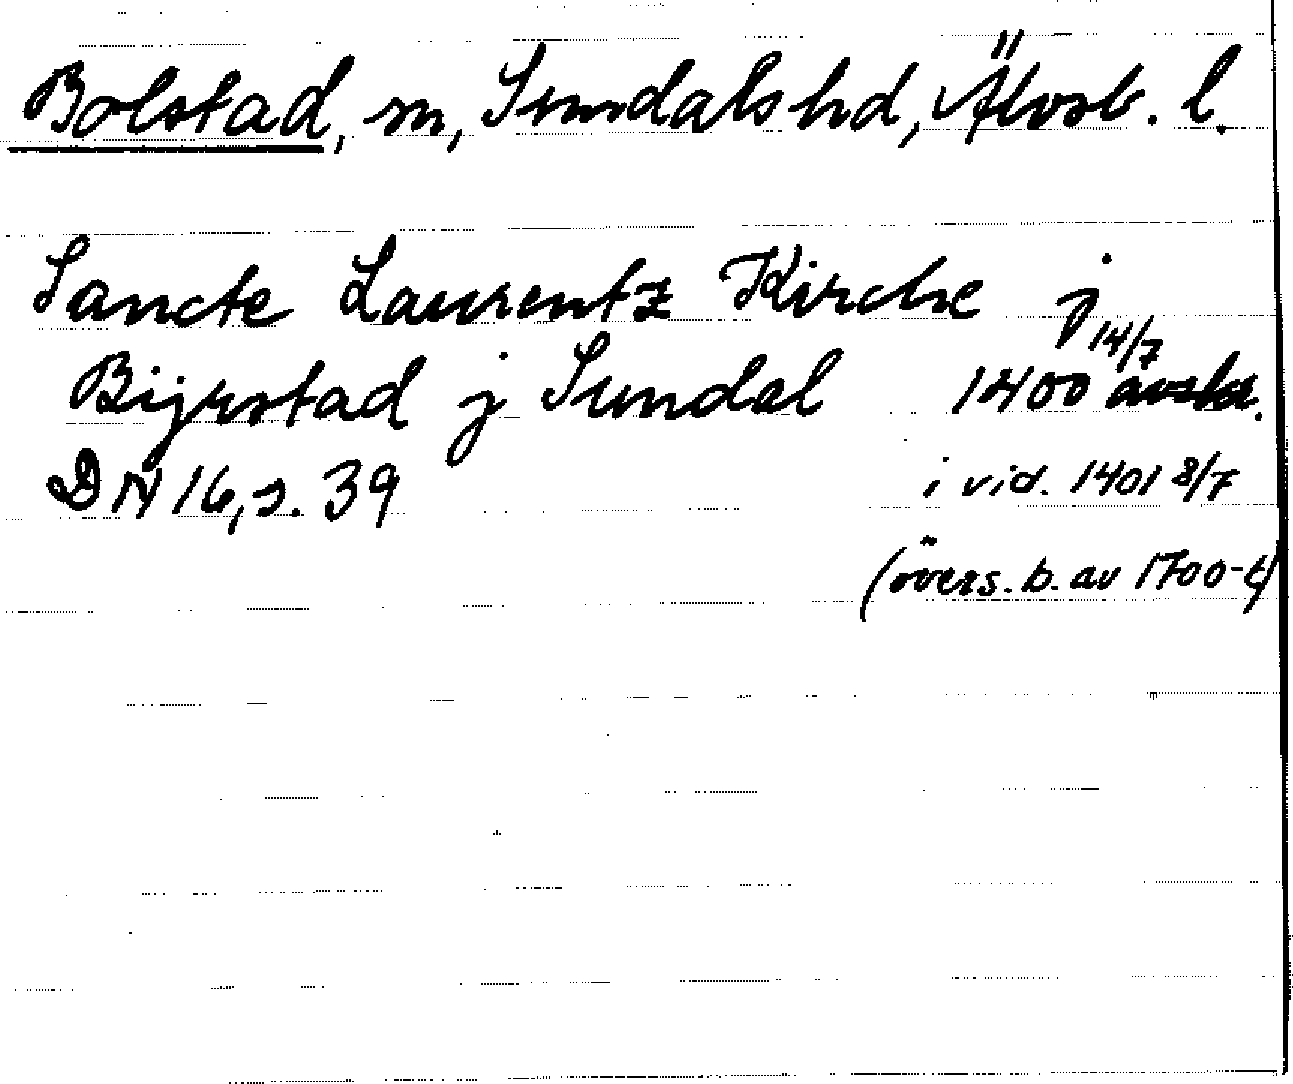 Bolstad, sn, Sundals hd, Älvsb. l.
Sancte Laurentz Kirche j
Bijrstad j Sundal 1400 14/7 avskr.
DN 16, s. 39 i vid. 1401 8/7
(övers. b. av 1700-t)